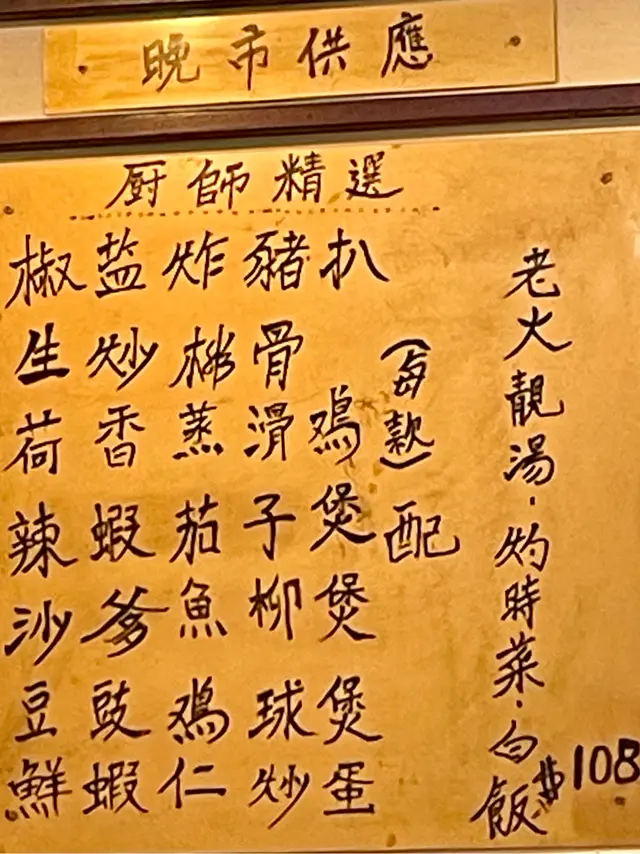 晚市供應
厨師精選
椒盐炸豬扒
生炒排骨
荷香蒸滑鸡
辣蝦茄子煲
沙爹魚柳煲
豆豉鸡球煲
鮮蝦仁炒蛋
(每款)配
老火靚湯·灼時菜·白飯
$108